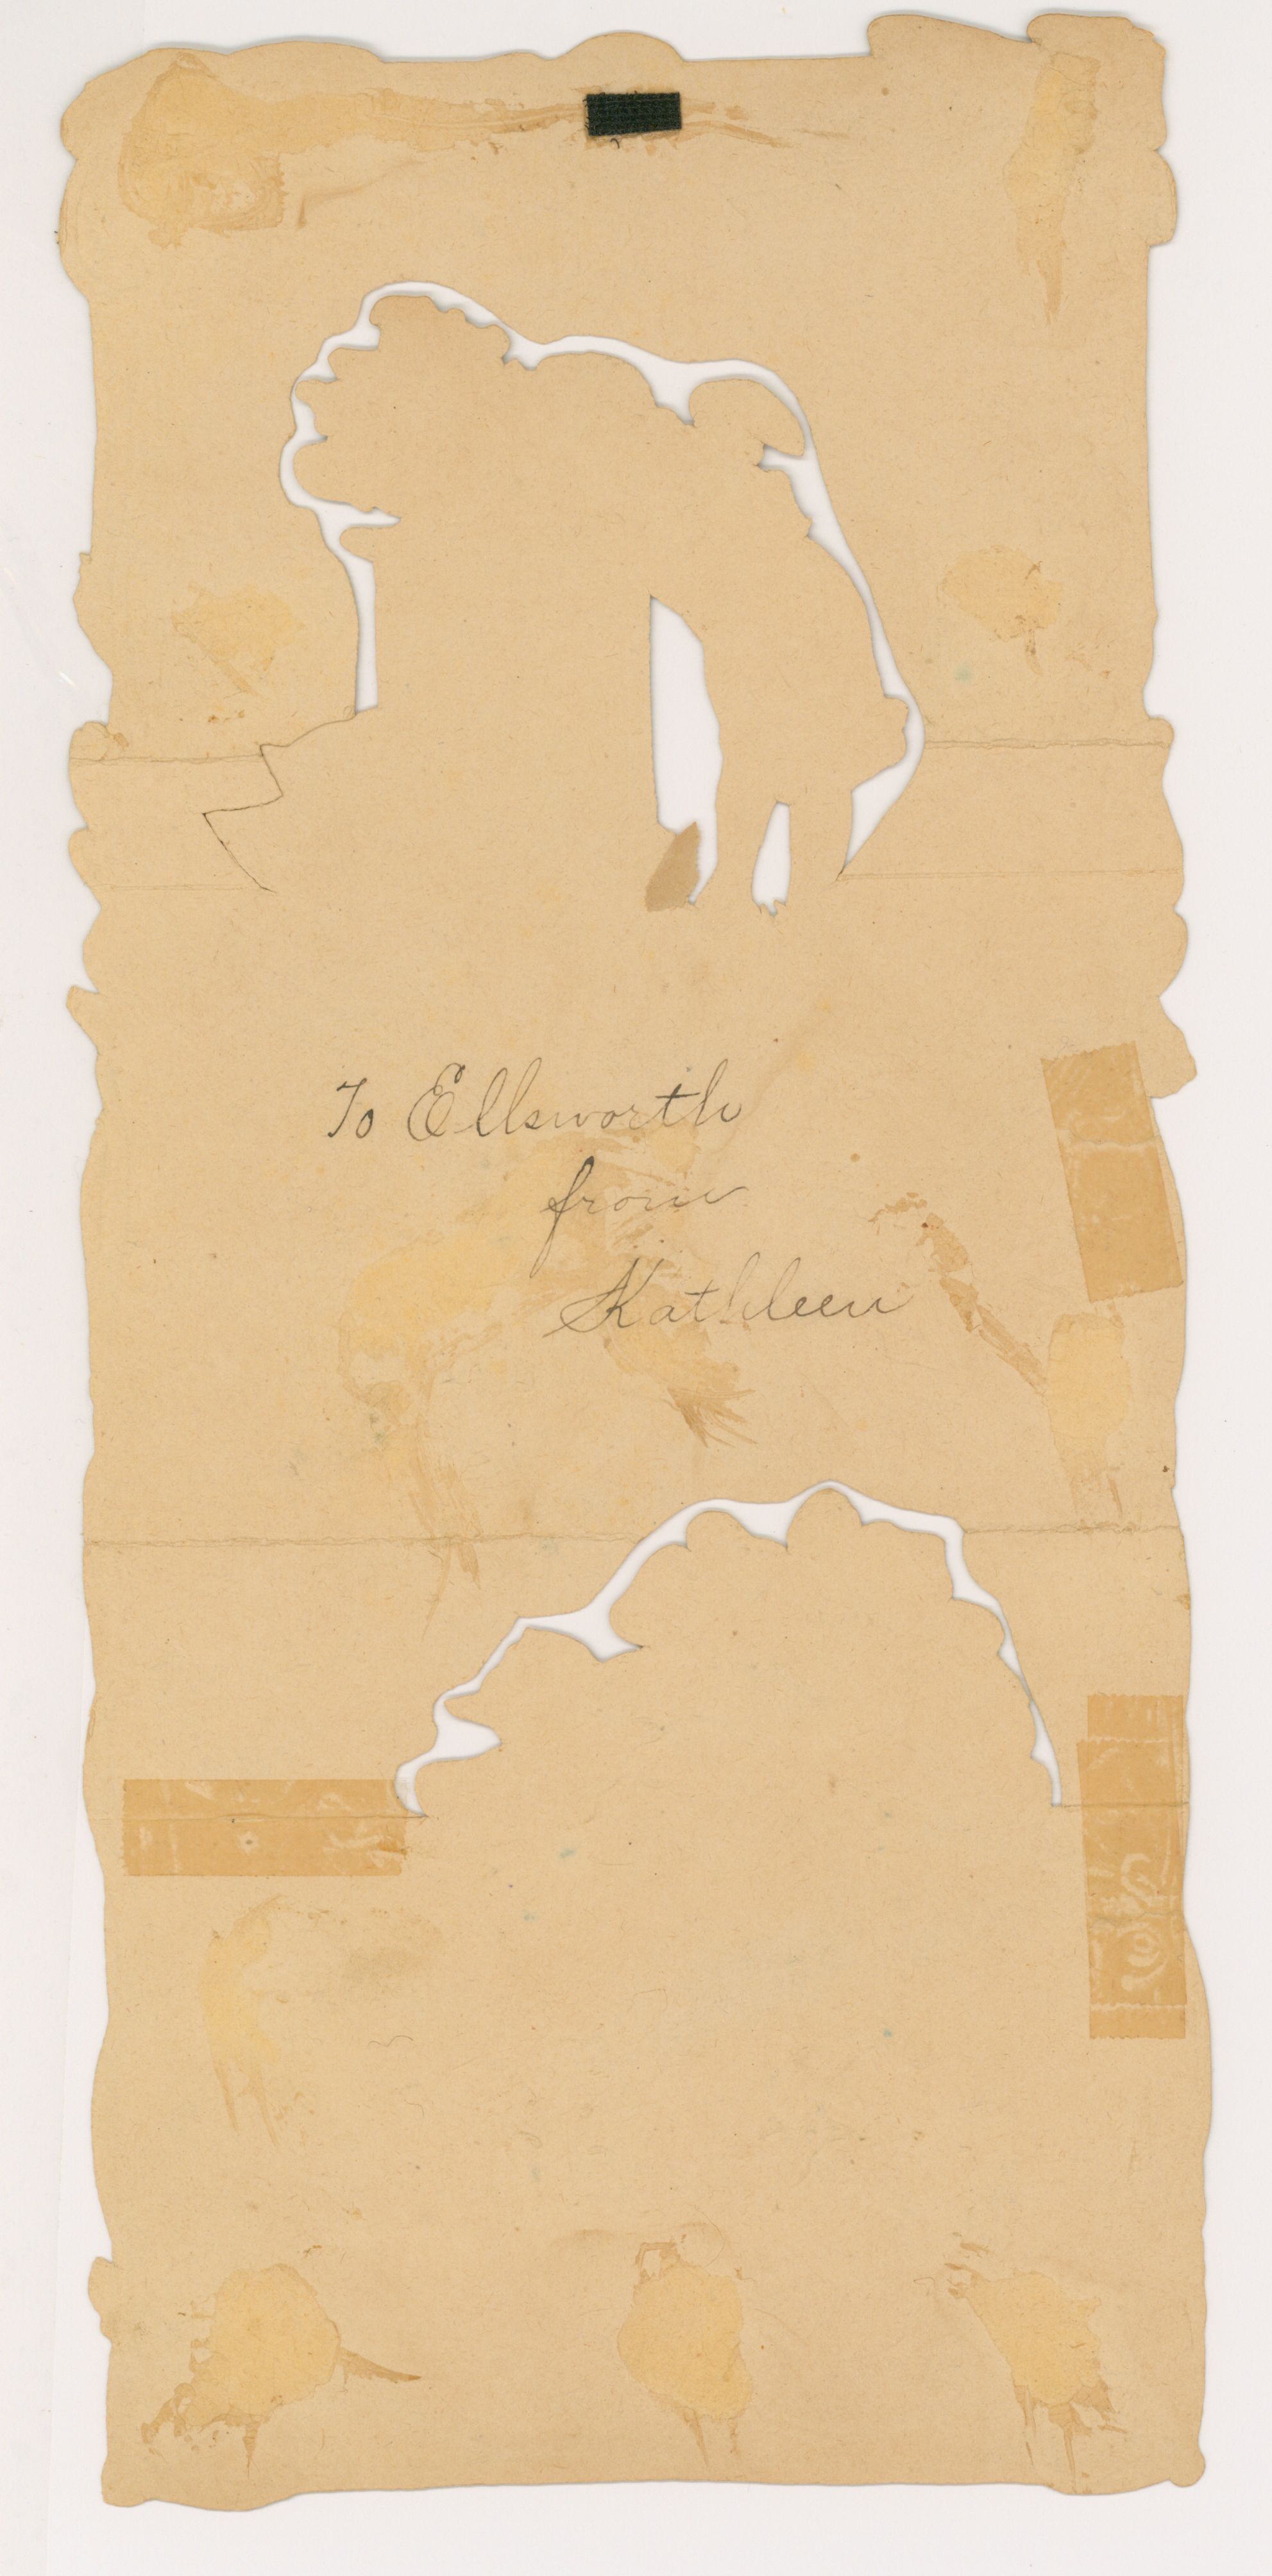 To Ellsworth
from
Kathleen